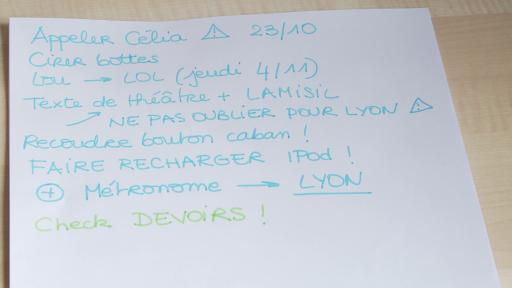 Appeler Célia ⚠ 23/10
Cirer bottes
Lou → LOL (jeudi 4/11)
Texte de théâtre + LAMISIL
↗ NE PAS OUBLIER POUR LYON ⚠
Recoudre bouton caban !
FAIRE RECHARGER iPod !
⊕ Métronome → LYON
Check DEVOIRS !